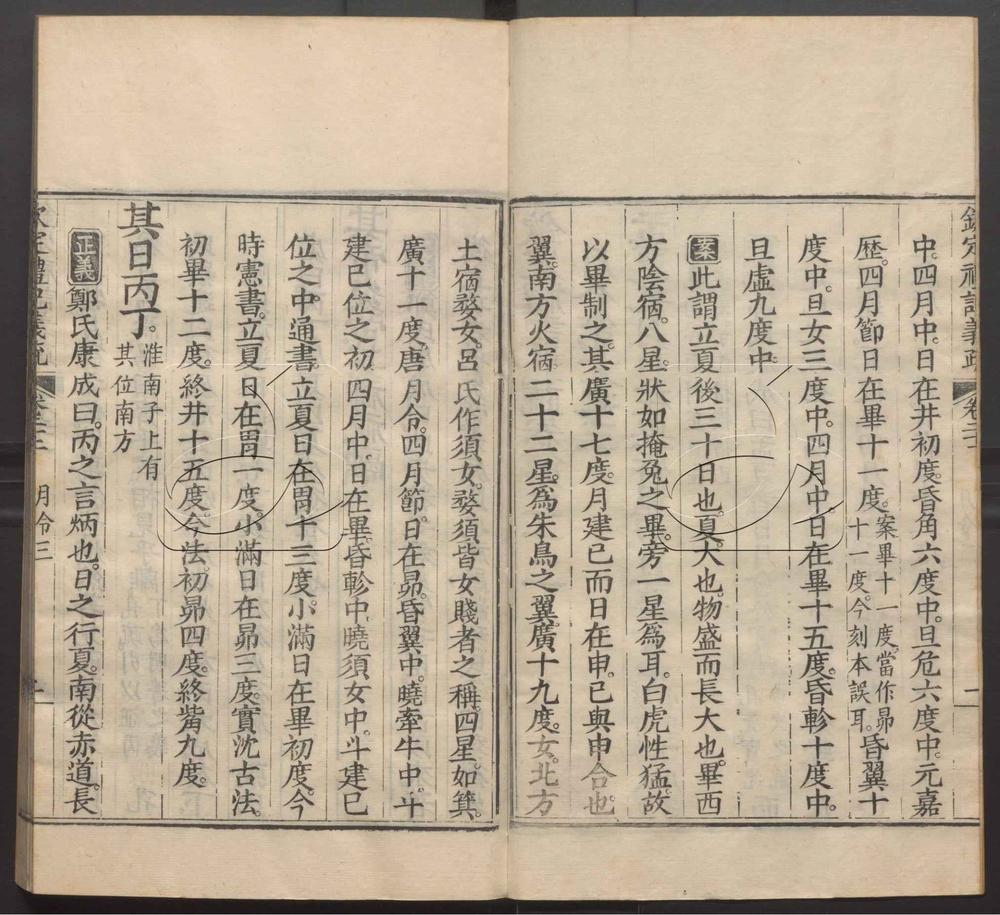 欽定禮記義疏 卷二十
中。四月中。日在井初度。昏角六度中。旦危六度中。元嘉
歴。四月節。日在畢十一度。案畢十一度。當作昴十一度。今刻本誤耳。昏翼十
度中。旦女三度中。四月中。日在畢十五度。昏軫十度中。
旦虛九度中。
案此謂立夏後三十日也。夏。大也。物盛而長大也。畢西
方陰宿。八星。狀如掩兔之畢。旁一星爲耳。白虎性猛。故
以畢制之。其廣十七度。月建巳而日在申。巳與申合也。
翼。南方火宿。二十二星。爲朱鳥之翼。廣十九度。女。北方
土宿婺女。呂氏作須女。婺須皆女賤者之稱。四星。如箕。
廣十一度。唐月令。四月節。日在昴。昏翼中。曉牽牛中。斗
建巳位之初。四月中。日在畢。昏軫中。曉須女中。斗建巳
位之中。通書。立夏日在胃十三度。小滿日在畢初度。今
時憲書。立夏日在胃一度。小滿日在昴三度。實沈古法。
初畢十二度。終井十五度。今法初昴四度。終觜九度。
其日丙丁。淮南子上有其位南方
正義鄭氏康成曰。丙之言炳也。日之行夏。南從赤道。長
欽定禮記義疏 月令三